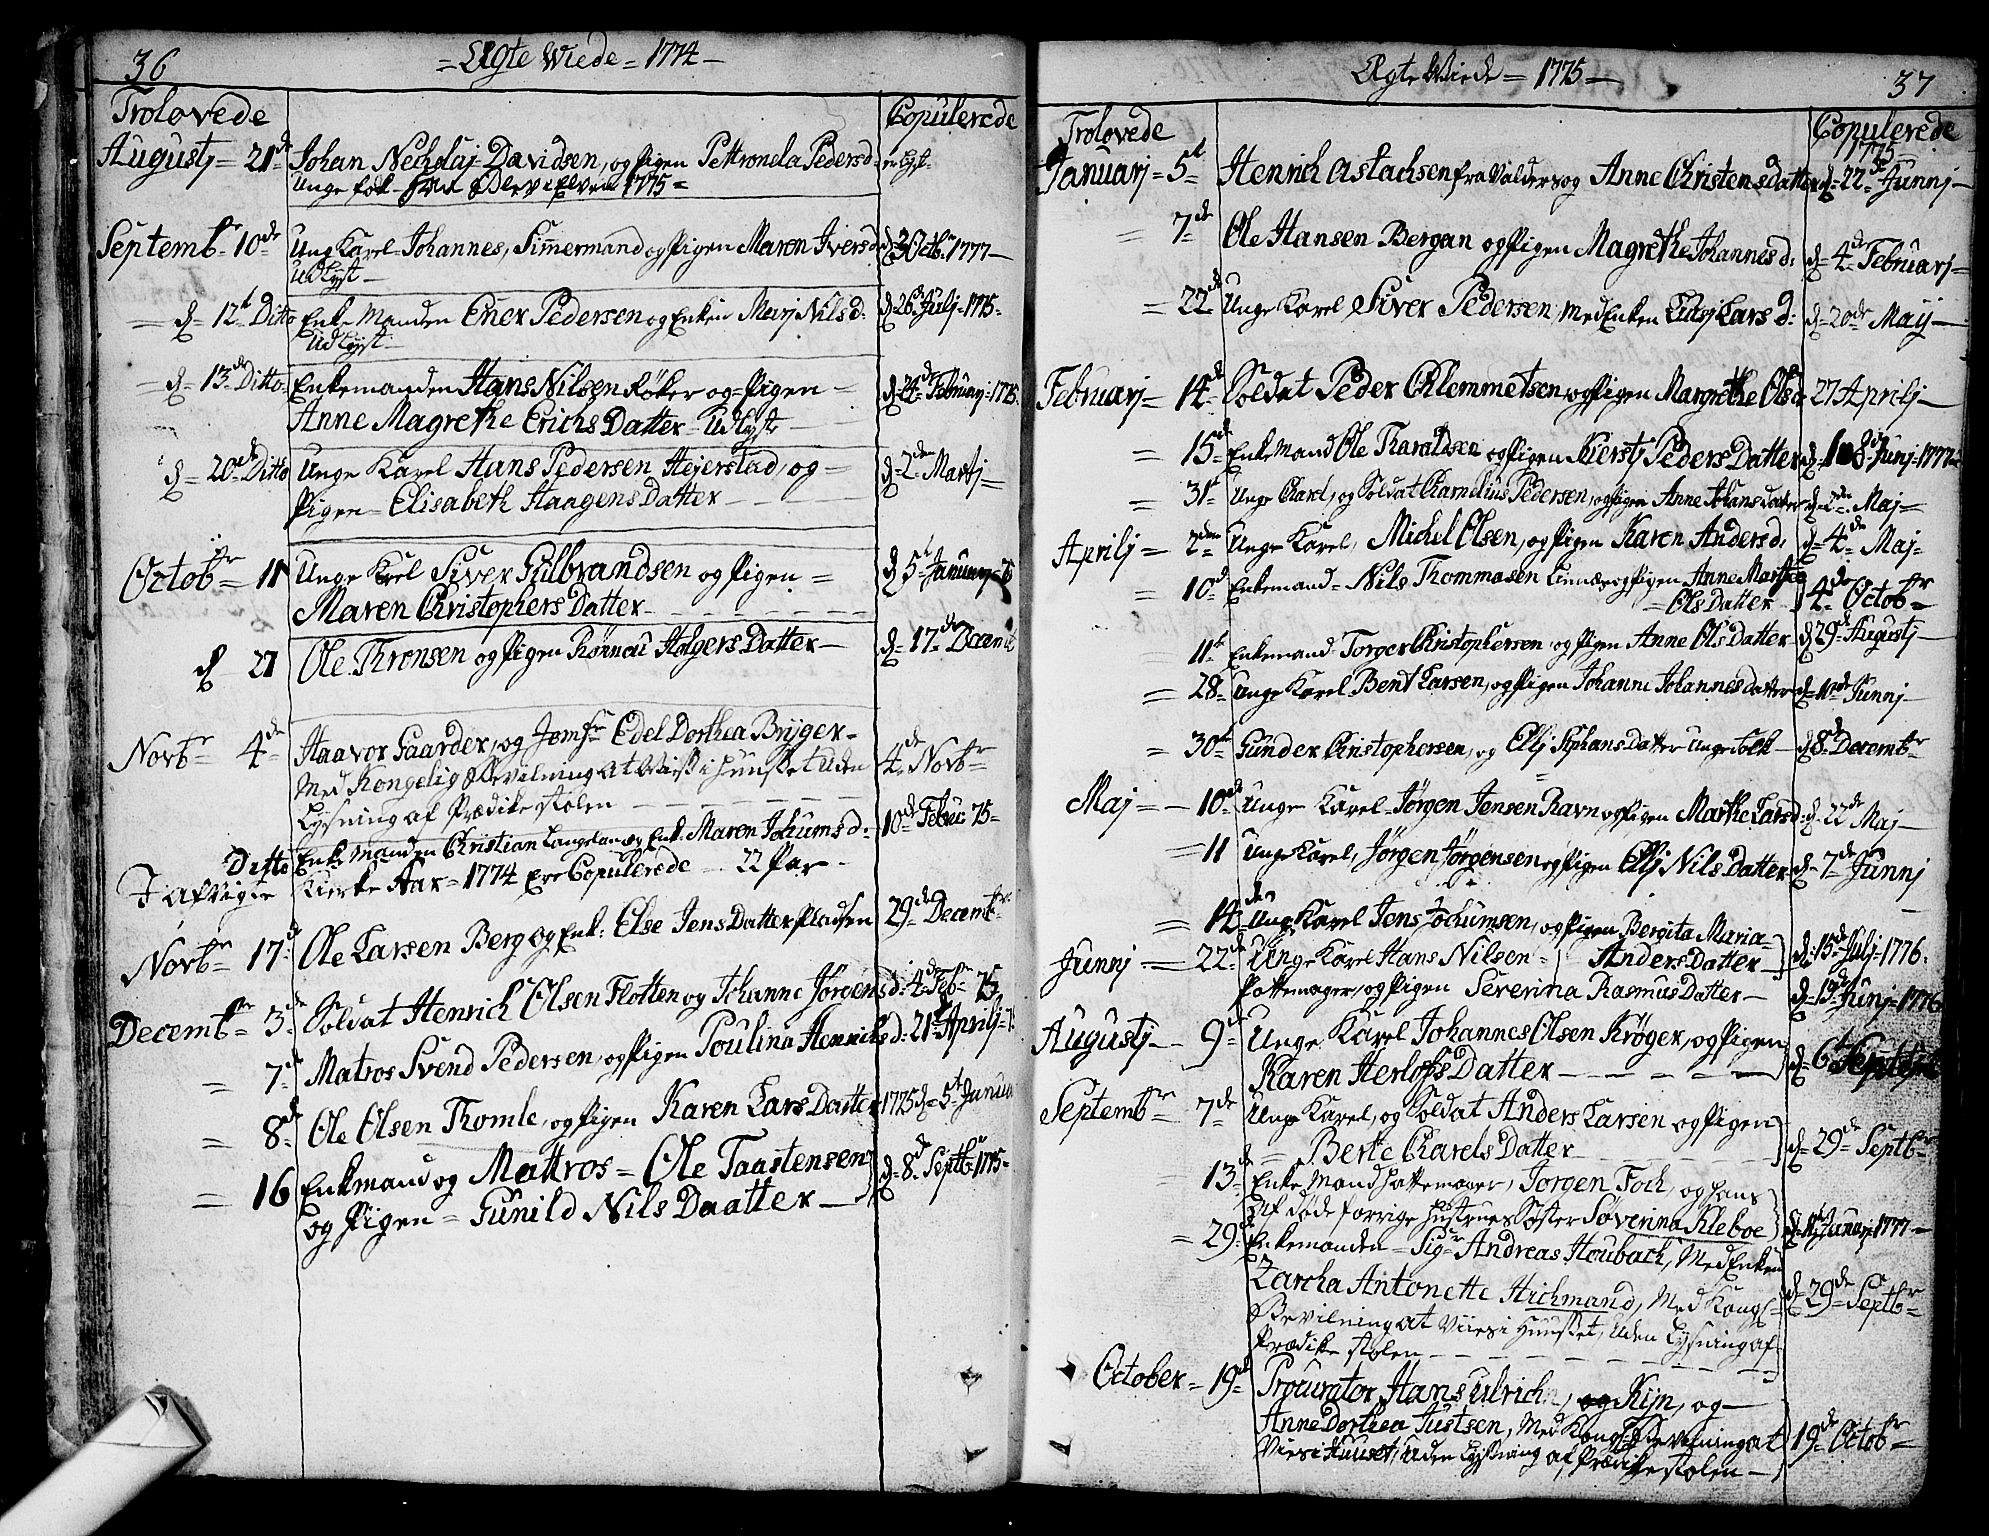 36 = Ægte Wiede = 1774 –
Trolovede Copulerede
Augustj = 21de Johan Davidsen, og Pigen Pettronela Pedersd:
Unge folk 1775 =
Septembr 10de Ung Karel Johannes, Simmermand og Pigen Maren Iversd: d 3 Octb: 1777 –
Udlyst –
– d = 12t Ditto Enke Manden Ener Pedersen og Enken Marj Nilsd: d 26 Julj = 1775 –
Udlyst –
– d = 13de Ditto Enkemanden Hans Nilsøn Røker og = Pigen = d 24de Februarj = 1775.
Anne Magrethe Erichs Datter – Udlyst –
d = 20de Ditto Unge Karel Hans Pedersen Hejerstad, og = d = 2den Martj =
Pigen – Elisabeth Haagens Datter
Octobr = 11 Unge Karel Siver Gulbrandsen og Pigen = d 5t Januarj =
Maren Christophers Datter –
d 27 Ole Thronsen og Pigen Rønnau Holgers Datter – d = 17de Decem
Novbr 4de Haavor Gaarder, og Jomfr Edel Dorthea Brijger – 4de Novbr =
Med Kongelig Bevilning at Viss i Hunsset uden
Lysning af Prædike stolen – – – – –
Ditto Enke Manden Christian Langeland og Enk: Maren Jokumsd: 10de Febru: 75 =
I afvigte Kierke Aar = 1774 ere Copulerede – 22 Par –
Novbr = 17d Ole Larsen Berg og Enk: Else Jens Datter Pladsen 29de Decembr
Decembr = 3de Soldat Henrich Olsen Flotten og Johanne Jørgensd: 4de Febr 75
= 7d Matros Svend Pedersen, og Pigen Poulina Henriksd: 21t Aprilj =
= 8d Ole Olsen Thomle, og Pigen Karen Lars Datter 1775 d = 5t Januar
= 16 Enkmand og Mattros = Ole Taastensen d 8d Septbr 1775 =
og Pigen = Gunild Nils Daatter –
Ægte Wiede = 1775 – 37
Trolovede Copulerede
1775
Januarj = 5t Henrich Astachsen fra Valders og Anne Christensdatter d 22d Junnj –
= 7de Ole Hansen Bergan og Pigen Magrethe Johannesd: d = 4de Februarj =
= 22d Unge Karel Siver Pedersen, med Enken Larsd: d = 20de Maij –
Februarj = 14d Soldat Peder Chlemmetsen, og Pigen Margrethe Olsd: 27 Aprilj –
= 15de Enke Mand Ole Tharaldsen og Pigen Kierstj Peders Datter d 8d Junj = 1777
= 31t Unge Charel, og Soldat Charnelius Pedersen, og Pigen Anne Johansdatter d = 2den Maj =
Aprilj = 2den Unge Karel, Michel Olsen, og Pigen Karen Andersd: d = 4de Maj =
= 10d Enkemand = Nils Thommasen Linnæs og Pigen Anne Martha 4de Octobr =
= Ols Datter
11t Enkemand Torger Christophersen og Pigen Anne Ols Datter d 29d Augustj –
= 28 = Unge Karel Bent Larsen, og Pigen Johanne Johannesdatter d = 10de Junnj –
= 30t Gunder Christophersen, og Ellj Stephans Datter Unge folk – d 8d Decembr
Maj = – 10d Unge Karel = Jørgen Jensen Ravn og Pigen Marthe Larsd: d = 22de Maj –
= 11 Unge Karel, Jørgen Jørgensen og Pigen Ellj Nils Datter d = 7de Junnj
= 14de Unge Karel Jens Jochumsen, og Pigen Bergita Maria = d: 15de Julj = 1776.
Anders Datter –
Junnj = 22de Unge Karel Hans Nilsen =
Pottemager, og Pigen Severina Rasmus Datter – d = 13d Junj = 1776
Augustj – 9d Unge Karel Johannes Olsen Krøger, og Pigen d = 6t Septbr
Karen Herlofs Datter – – – –
Septembr = 7de Unge Karel, og Soldat Anders Larsen og Pigen
= Berte Charels Datter – – – d = 29de Septbr
13d Enke Mand Hattemager, Jørgen Foch, og hans
Af døde forrige Hustrues Søster Søverina Kleboe d Junarj = 1777 –
= 29d Enkemanden = Sigr Andreas Houbach, Med Enken
Zarcha Antonette Hichmand, Med Kongs = d = 29de Septbr
Bevilning at Viies i Huusset, Uden Lysning af
Prædike stolen – – – –
October = 19d Procurator Hans Ulrich, Kijn, og –
Anne Dorthea Justsen, Med Kongs Bevilning at 19de Octobr =
Viies i Huuset, Uden Lysning af Prædikestolen –